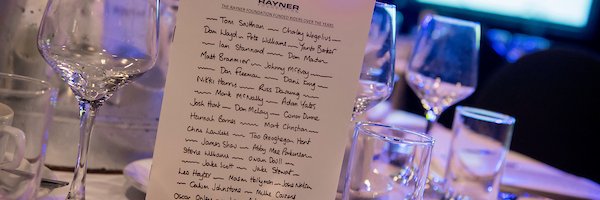 RAYNER
THE RAYNER FOUNDATION FUNDED RIDERS OVER THE YEARS
Tom Southam — Charley Wegelius
Dan Lloyd — Pete Williams — Yanto Barker
Ian Stannard — Dan Martin
Matt Brammeier — Johnny McEvoy
Dan Fleeman — Dani King
Nikki Harris — Russ Downing
Mark McNally — Adam Yates
Josh Hunt — Dan McLay — Conor Dunne
Hannah Barnes — Matt Christian
China Lawless — Tao Geoghegan Hart
James Shaw — Abby Mae Parkinson
Stevie Williams — Owain Doull
Jake Scott — Jake Stewart
Leo Hayter — Mason Hollyman — Joss Nelson
Callum Johnstone — Mike Cuming
Oscar